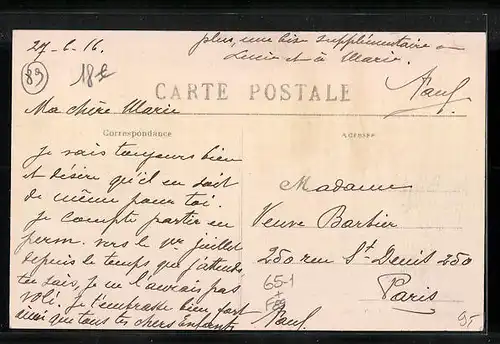 27-6-16.
plus, une bise supplémentaire à
Lucie et à Marie.
Paul.
(89)
18 E
CARTE POSTALE
Ma chère Marie
Correspondance
Adresse
Je vais toujours bien
et désire qu'il en soit
de même pour toi.
Je compte partir en
perm. vers le 1er juillet
depuis le temps que j'attends,
tu sais, je ne l'aurais pas
volé. Je t'embrasse bien fort
ainsi que tous tes chers Enfants
Paul.
Madame
Veuve Barbier
250 rue St Denis 250
Paris
65-1
95